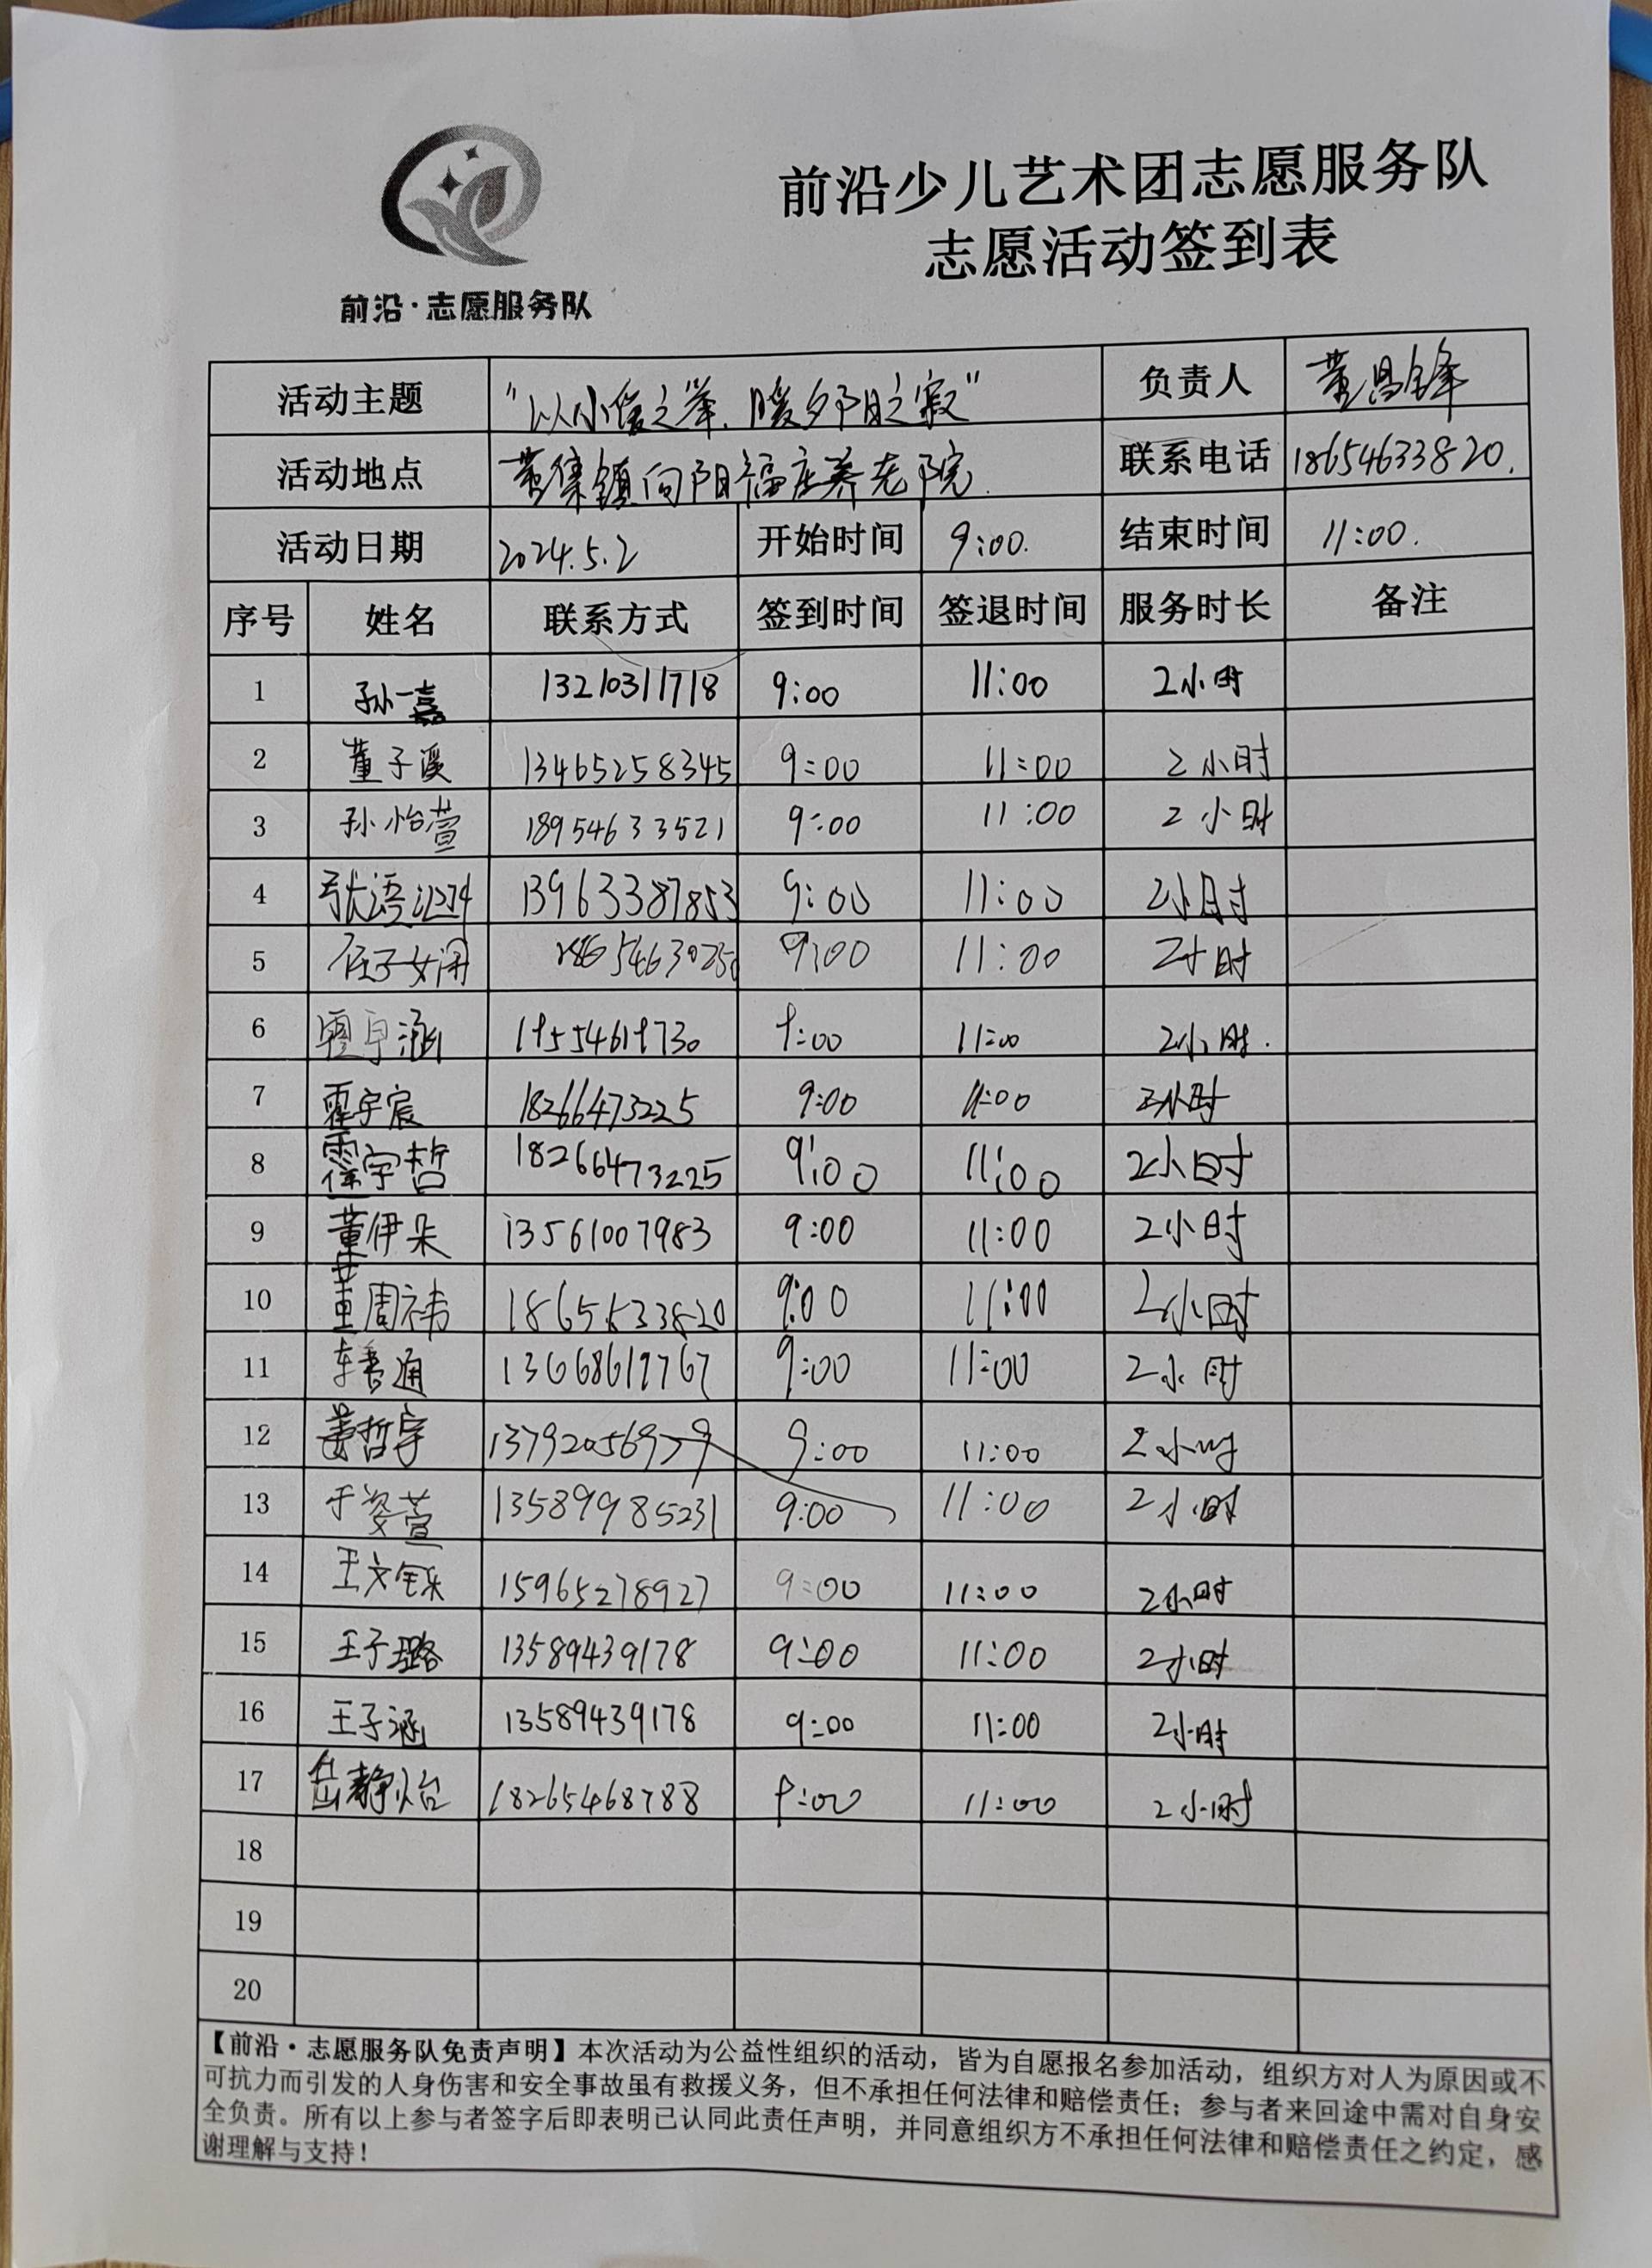 前沿少儿艺术团志愿服务队
志愿活动签到表
前沿·志愿服务队
活动主题 “以小爱之举，暖夕阳之寂” 负责人 董昌锋
活动地点 董集镇向阳福庄养老院 联系电话 18654633820.
活动日期 2024.5.2 开始时间 9:00. 结束时间 11:00.
序号 姓名 联系方式 签到时间 签退时间 服务时长 备注
1 孙一嘉 13210311718 9:00 11:00 2小时
2 董子溪 13465258345 9:00 11:00 2小时
3 孙怡萱 18954633521 9:00 11:00 2小时
4 张语 13963387853 9:00 11:00 2小时
5 任子娴 9:00 11:00 2小时
6 涵 19554619730 9:00 11:00 2小时.
7 霍宇宸 18266473225 9:00 11:00 2小时
8 霍宇哲 18266473225 9:00 11:00 2小时
9 董伊朵 13561007983 9:00 11:00 2小时
10 董周祎 9:00 11:00 2小时
11 9:00 11:00 2小时
12 姜哲宇 13792056979 9:00 11:00 2小时
13 于姿萱 13589985231 9:00 11:00 2小时
14 王文铄 15965278927 9:00 11:00 2小时
15 王子璐 13589439178 9:00 11:00 2小时
16 王子涵 13589439178 9:00 11:00 2小时
17 岳静怡 18265468788 9:00 11:00 2小时
18
19
20
【前沿·志愿服务队免责声明】本次活动为公益性组织的活动，皆为自愿报名参加活动，组织方对人为原因或不
可抗力而引发的人身伤害和安全事故虽有救援义务，但不承担任何法律和赔偿责任；参与者来回途中需对自身安
全负责。所有以上参与者签字后即表明已认同此责任声明，并同意组织方不承担任何法律和赔偿责任之约定，感
谢理解与支持！